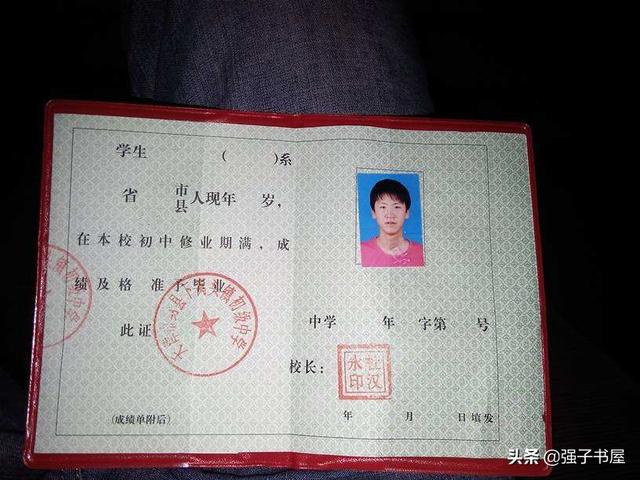 学生 ( )系
省 市县 人现年 岁，
在本校初中修业期满，成
绩及格 准予毕业
此证
镇初级中学
中学 年 字第 号
校长：
永 汉印
(成绩单附后)
年 月 日填发
头条 @强子书屋